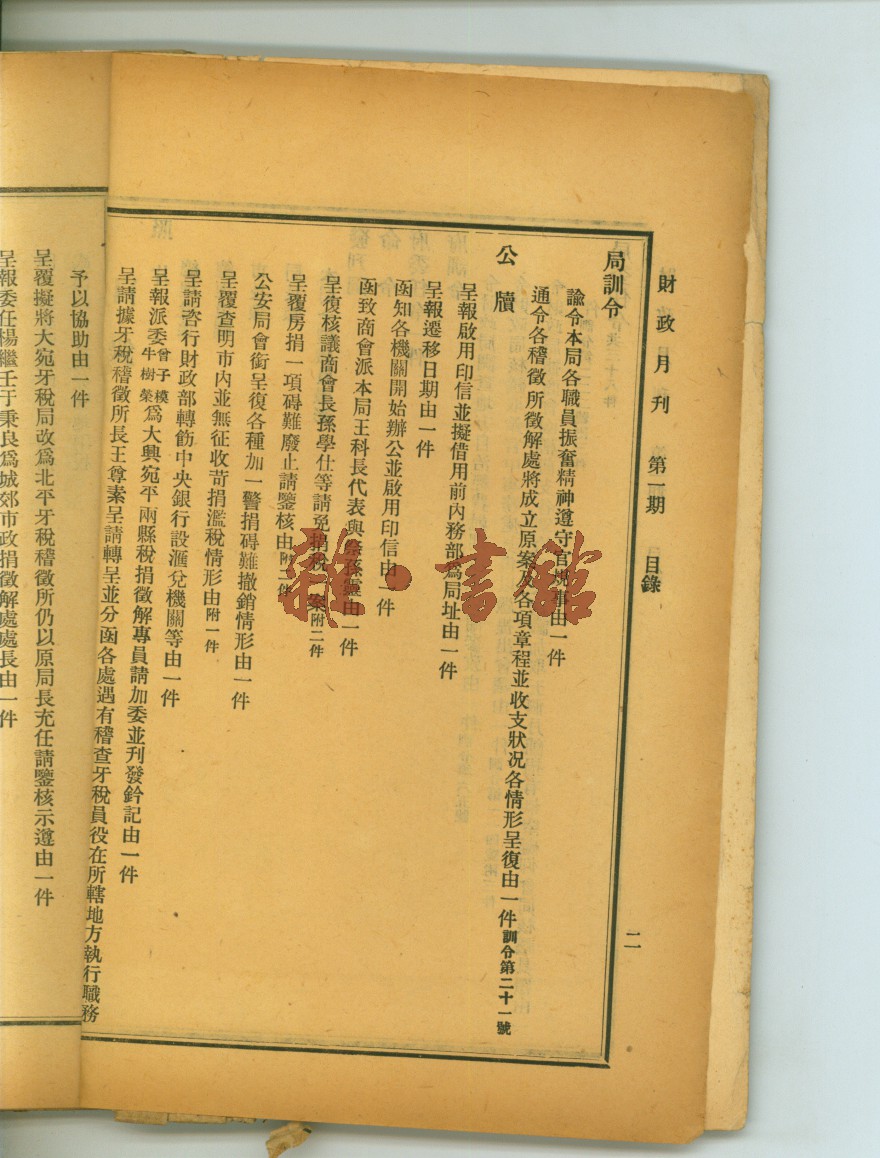 財政月刊 第一期 目錄 二
局訓令
諭令本局各職員振奮精神遵守官規事由一件
通令各稽徵所徵解處將成立原案及各項章程並收支狀况各情形呈復由一件訓令第二十一號
公牘
呈報啟用印信並擬借用前內務部爲局址由一件
呈報遷移日期由一件
函知各機關開始辦公並啟用印信由一件
函致商會派本局王科長代表與祭孫靈由一件
呈復核議商會長孫學仕等請免捐稅一案附二件
呈覆房捐一項碍難廢止請鑒核由附二件
公安局會銜呈復各種加一警捐碍難撤銷情形由一件
呈覆查明市內並無征收苛捐濫稅情形由附一件
呈請咨行財政部轉飭中央銀行設滙兌機關等由一件
呈報派委曾子模牛樹榮爲大興宛平兩縣稅捐徵解專員請加委並刊發鈐記由一件
呈請據牙稅稽徵所長王尊素呈請轉呈並分函各處遇有稽查牙稅員役在所轄地方執行職務
予以協助由一件
呈覆擬將大宛牙稅局改爲北平牙稅稽徵所仍以原局長充任請鑒核示遵由一件
呈報委任楊繼壬于秉良爲城郊市政捐徵解處處長由一件
雜·書館